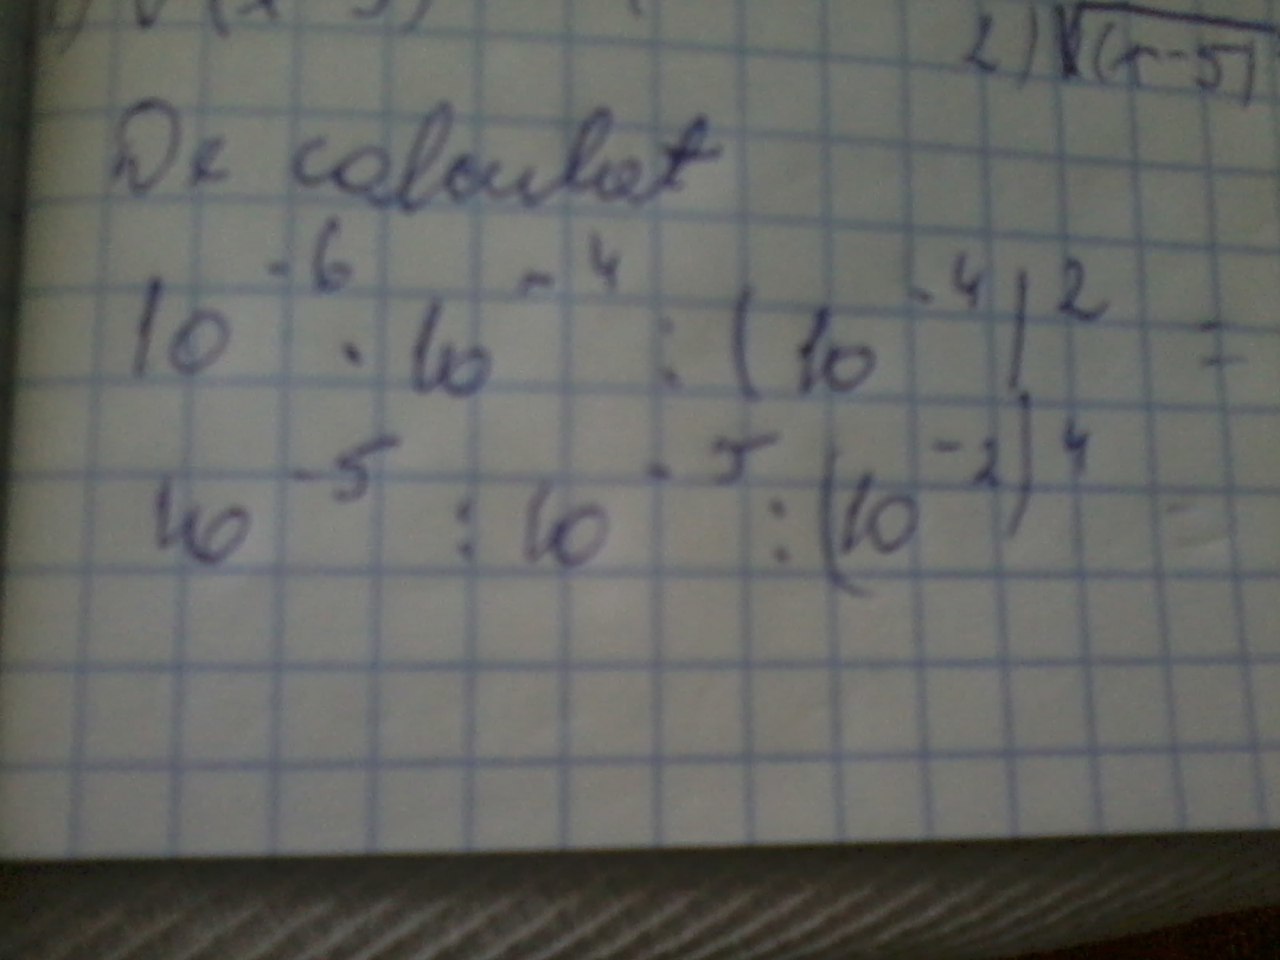 2) √(x-5)
De calculat
10⁻⁶ · 10⁻⁴ : (10⁻⁴)² =
10⁻⁵ : 10⁻⁵ : (10⁻²)⁴ =